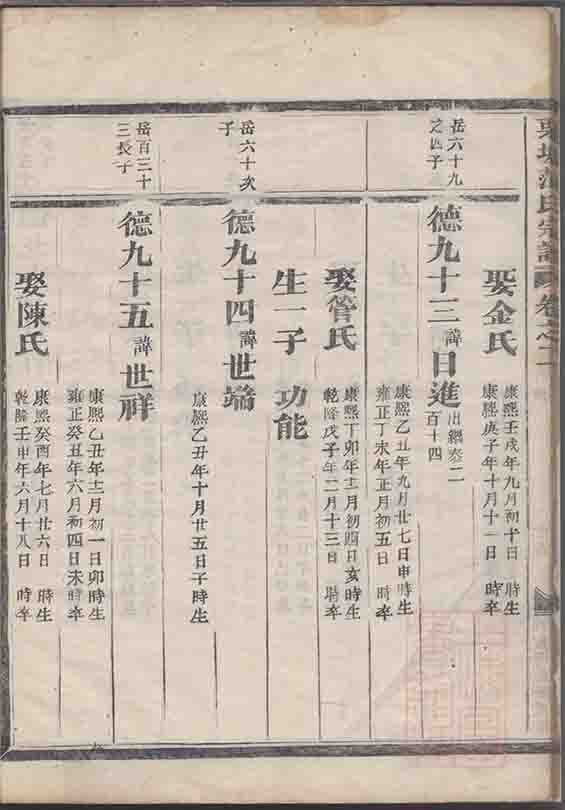 氏宗譜 卷之二
娶金氏 康熙壬戌年九月初十日 時生
康熙庚子年十月十一日 時卒
岳六十九之四子
德九十三 諱日進 出繼泰二百十四
康熙乙丑年九月廿七日申時生
雍正丁未年正月初五日 時卒
娶管氏 康熙丁卯年三月初四日亥時生
乾隆戊子年二月十三日 時卒
生一子 功能
岳六十次子
德九十四 諱世端
康熙乙丑年十月廿五日子時生
岳百三十三長子
德九十五 諱世祥
康熙乙丑年十二月初一日卯時生
雍正癸丑年六月初四日未時卒
娶陳氏 康熙癸酉年七月廿六日 時生
乾隆壬申年六月十八日 時卒